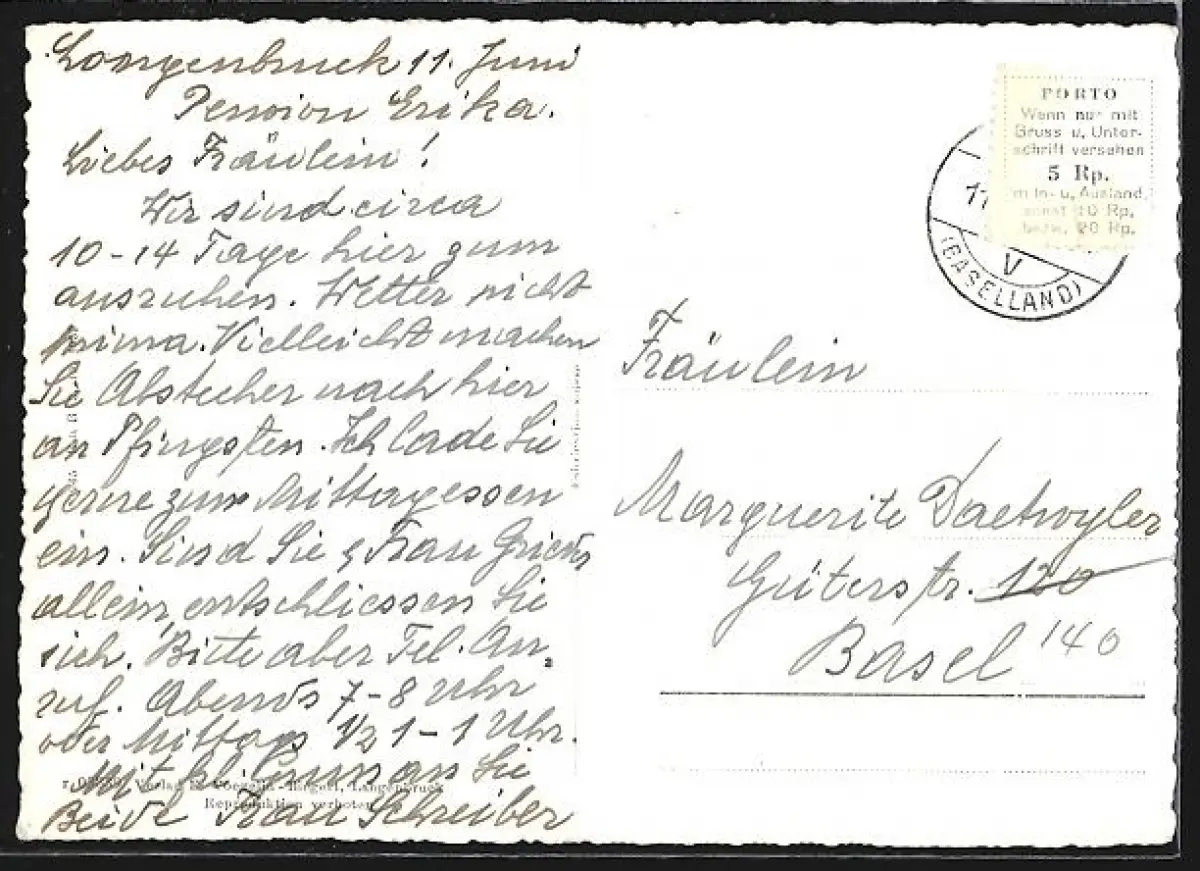 Langenbruck 11. Juni
Pension Erika.
Liebes Fräulein!
Wir sind circa
10-14 Tage hier zum
ausruhen. Wetter nicht
prima. Vielleicht machen
Sie Abstecher nach hier
an Pfingsten. Ich lade Sie
gerne zum Mittagessen
ein. Sind Sie & Frau
allein, entschliessen Sie
sich. Bitte aber Tel. An,
ruf. Abends 7-8 Uhr
oder Mittags 1/2 1-1 Uhr.
Mit hl. Gruss an Sie
Beide Frau Schreiber
Verlag Langenbruck
Reproduktion verboten
PORTO
Wenn nur mit
Gruss u. Unter-
schrift versehen
5 Rp.
im In- u. Ausland,
sonst 10 Rp.
bezw. 20 Rp.
11
V
(BASELLAND)
Fräulein
Marguerite Daetwyler
Güterstr. 120
Basel 140